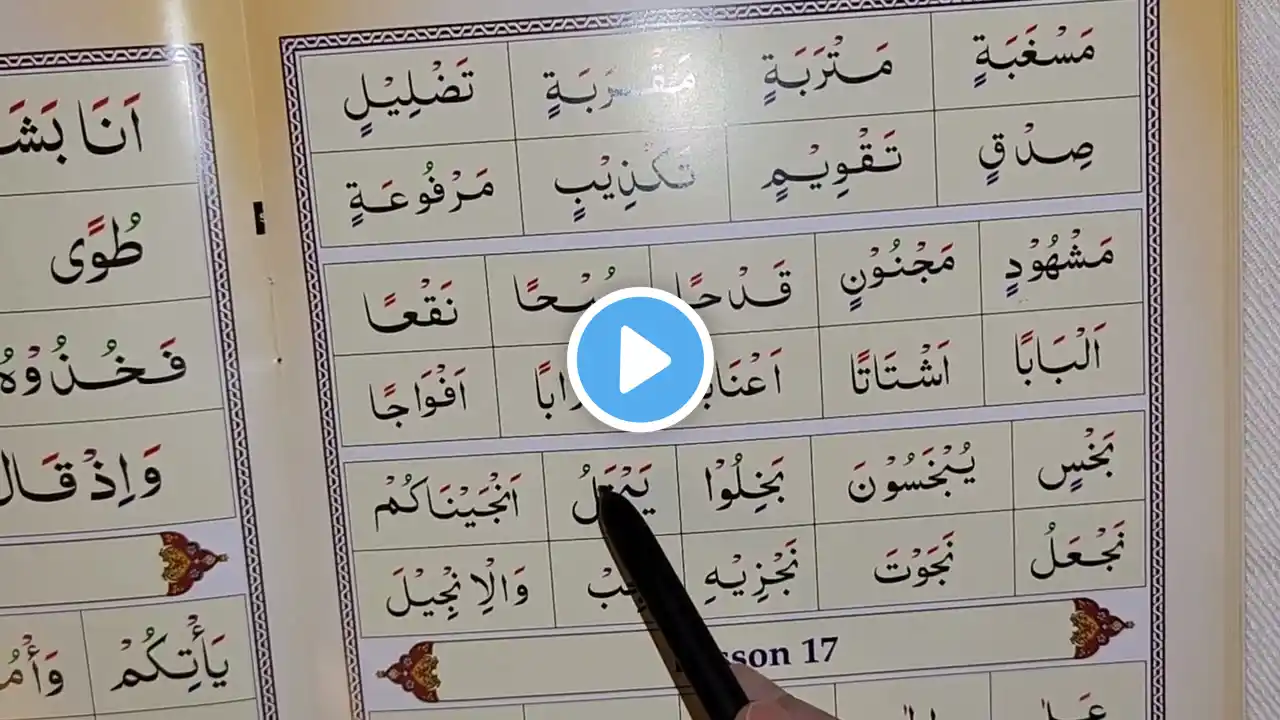 مَسْغَبَةٍ مَتْرَبَةٍ مَقْرَبَةٍ تَضْلِيْلٍ
صِدْقٍ تَقْوِيْمٍ تَكْذِيْبٍ مَرْفُوْعَةٍ
مَشْهُوْدٍ مَجْنُوْنٍ قَدْحًا نَقْعًا
اَلْبَابًا اَشْتَاتًا اَفْوَاجًا
بَخْسٍ يُبْخَسُوْنَ بَخِلُوْا اَنْجَيْنَاكُمْ
نَجْعَلُ نَجَوْتَ نَجْزِيْهِ وَالْاِنْجِيْلَ
Lesson 17
اَنَا
طُوًى
فَخُذُوْهُ
وَاِذْ قَالَ
يَأْتِكُمْ